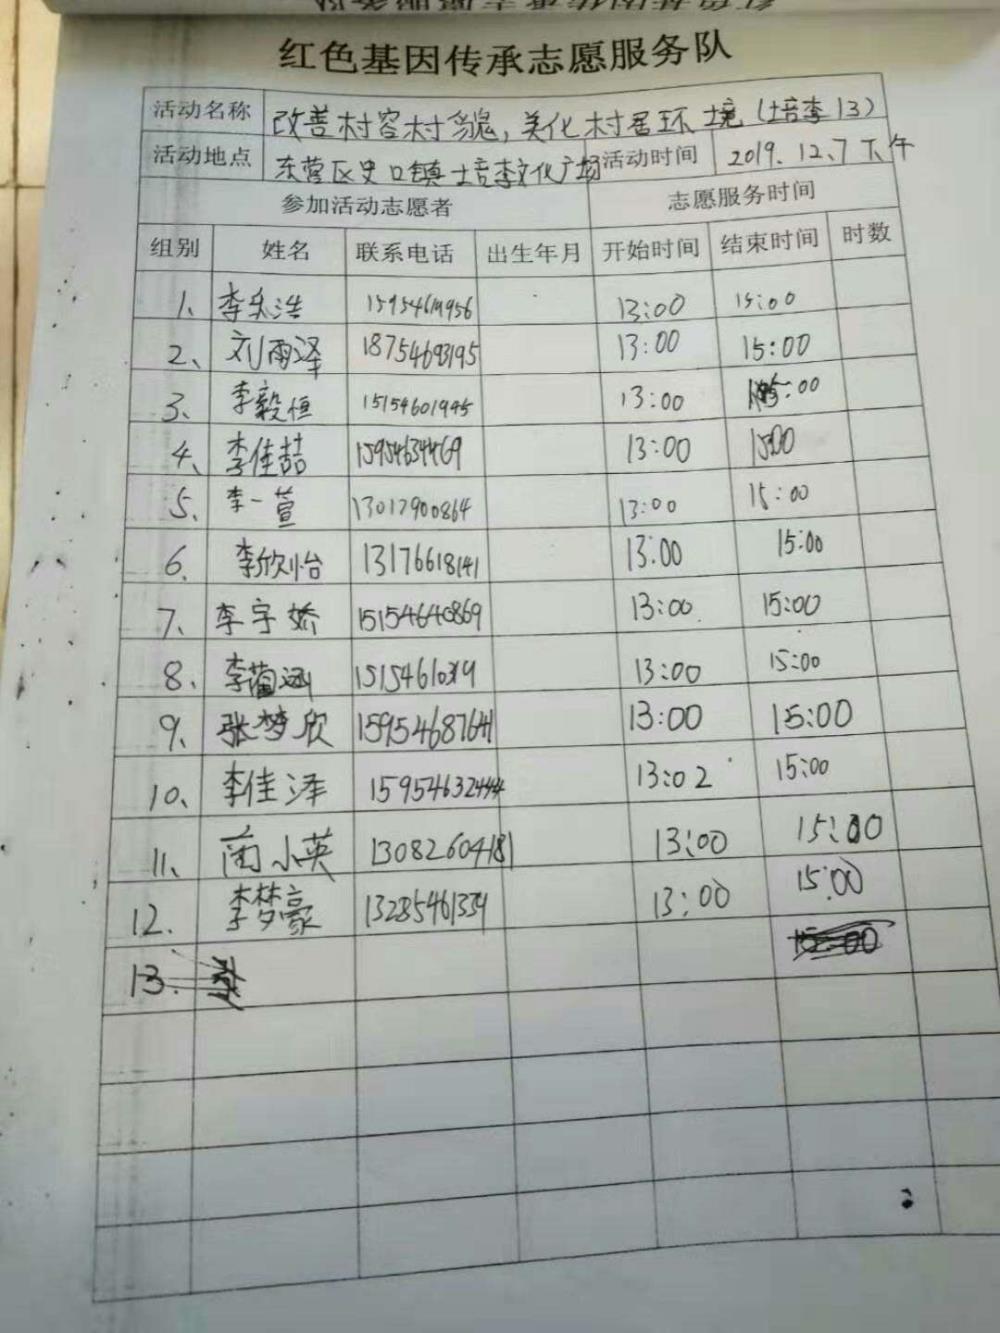 红色基因传承志愿服务队
活动名称 改善村容村貌,美化村居环境(培李13)
活动地点 东营区史口镇培李文化广场 活动时间 2019.12.7 下午
参加活动志愿者 志愿服务时间
组别 姓名 联系电话 出生年月 开始时间 结束时间 时数
1、 李乐浩 13:00 15:00
2、 刘雨泽 18754693195 13:00 15:00
3、 李毅恒 15154601995 13:00 :00
4、 李佳喆 15954634469 13:00 15:00
5、 李一萱 13017900864 13:00 15:00
6、 李欣怡 13176618141 13:00 15:00
7、 李宇娇 15154640869 13:00 15:00
8、 李蔺涵 13:00 15:00
9、 张梦欣 15954687641 13:00 15:00
10、 李佳泽 15954632444 13:02 15:00
11、 蔺小英 13082604181 13:00 15:00
12. 李梦豪 13285461334 13:00 15:00
13.